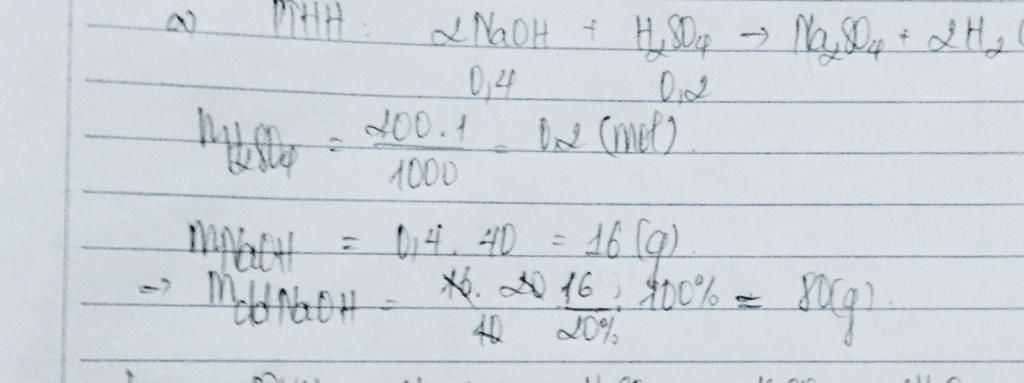 a) PTHH: 2NaOH + H₂SO₄ → Na₂SO₄ + 2H₂
0,4 0,2
nH₂SO₄ = 200.1/1000 = 0,2 (mol).
mNaOH = 0,4. 40 = 16 (g).
=> mddNaOH = 16/20% . 100% = 80(g).